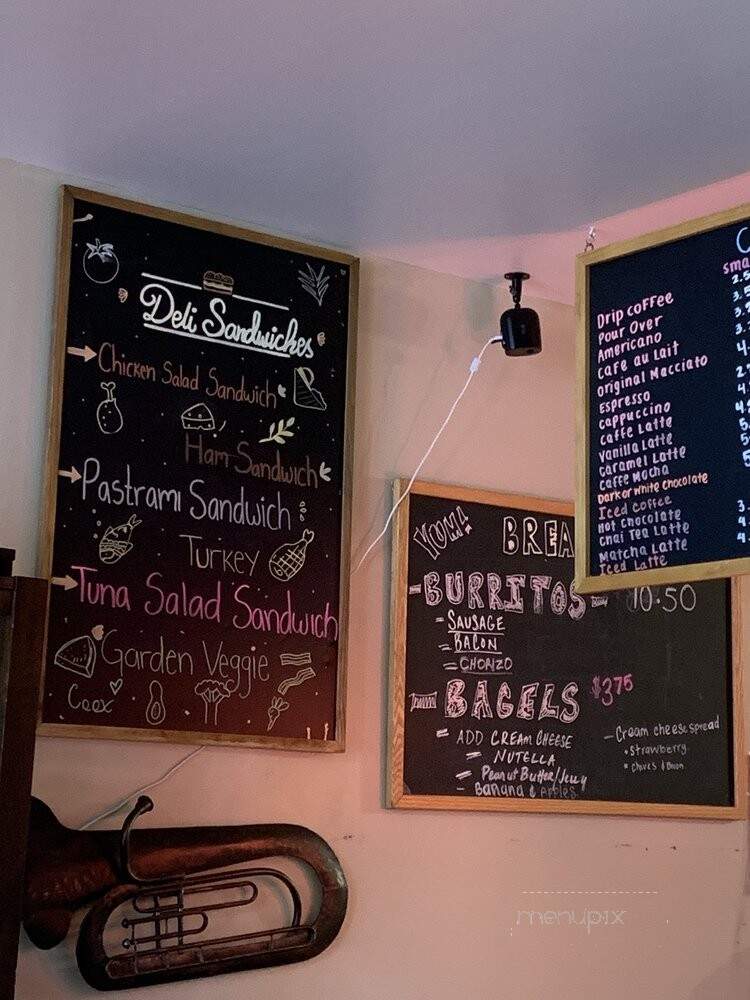 Deli Sandwiches
Chicken Salad Sandwich
Ham Sandwich
Pastrami Sandwich
Turkey
Tuna Salad Sandwich
Garden Veggie
YUM!
BREA
BURRITOS 10.50
- SAUSAGE
- BACON
- CHORIZO
BAGELS $375
- ADD CREAM CHEESE
- NUTELLA
- Peanut Butter/Jelly
- Banana & Apples
- Cream cheese spread
• Strawberry
• Chives & Onion
C
sma
Drip coffee 2.5
Pour Over 3.5
Americano
Cafe au Lait
Original Macciato
Espresso
Cappuccino
Caffe Latte
Vanilla Latte
Caramel Latte
Caffe Mocha
Dark or White Chocolate
Iced coffee
Hot Chocolate
Chai Tea Latte
Matcha Latte
Iced Latte
menupix